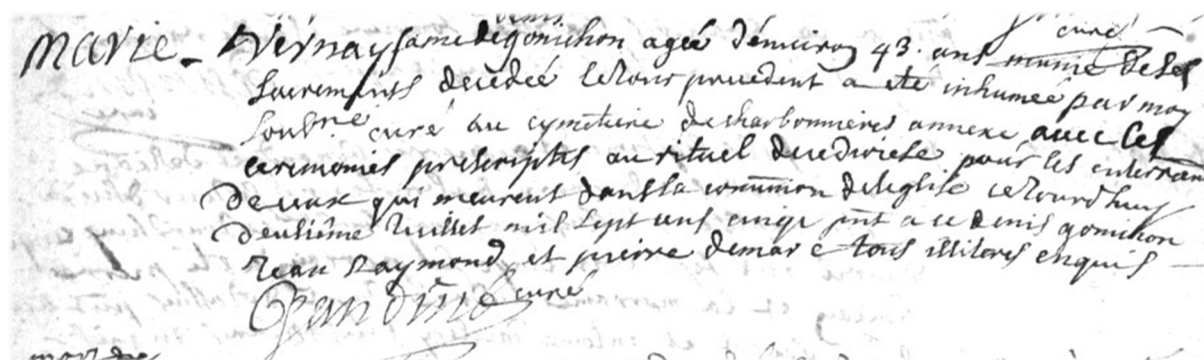 denis curé
Marie - Vernay fame de gonichon ageé d'enuiron 43. ans munie de ses
sacrements decedeé le Jour precedent a eté inhumeé par moy
soubne curé au cymetiere de charbonnieres annexe auec les
ceremonies prescriptes au rituel du diocese pour les enterrem
de ceux qui meurent dans la com̃union de leglise ce Jourdhuy
deusiême Juillet mil sept cens cinqt pñt a ce denis gonichon
Jean Raymond et pierre demare tous illiteres enquis
curé